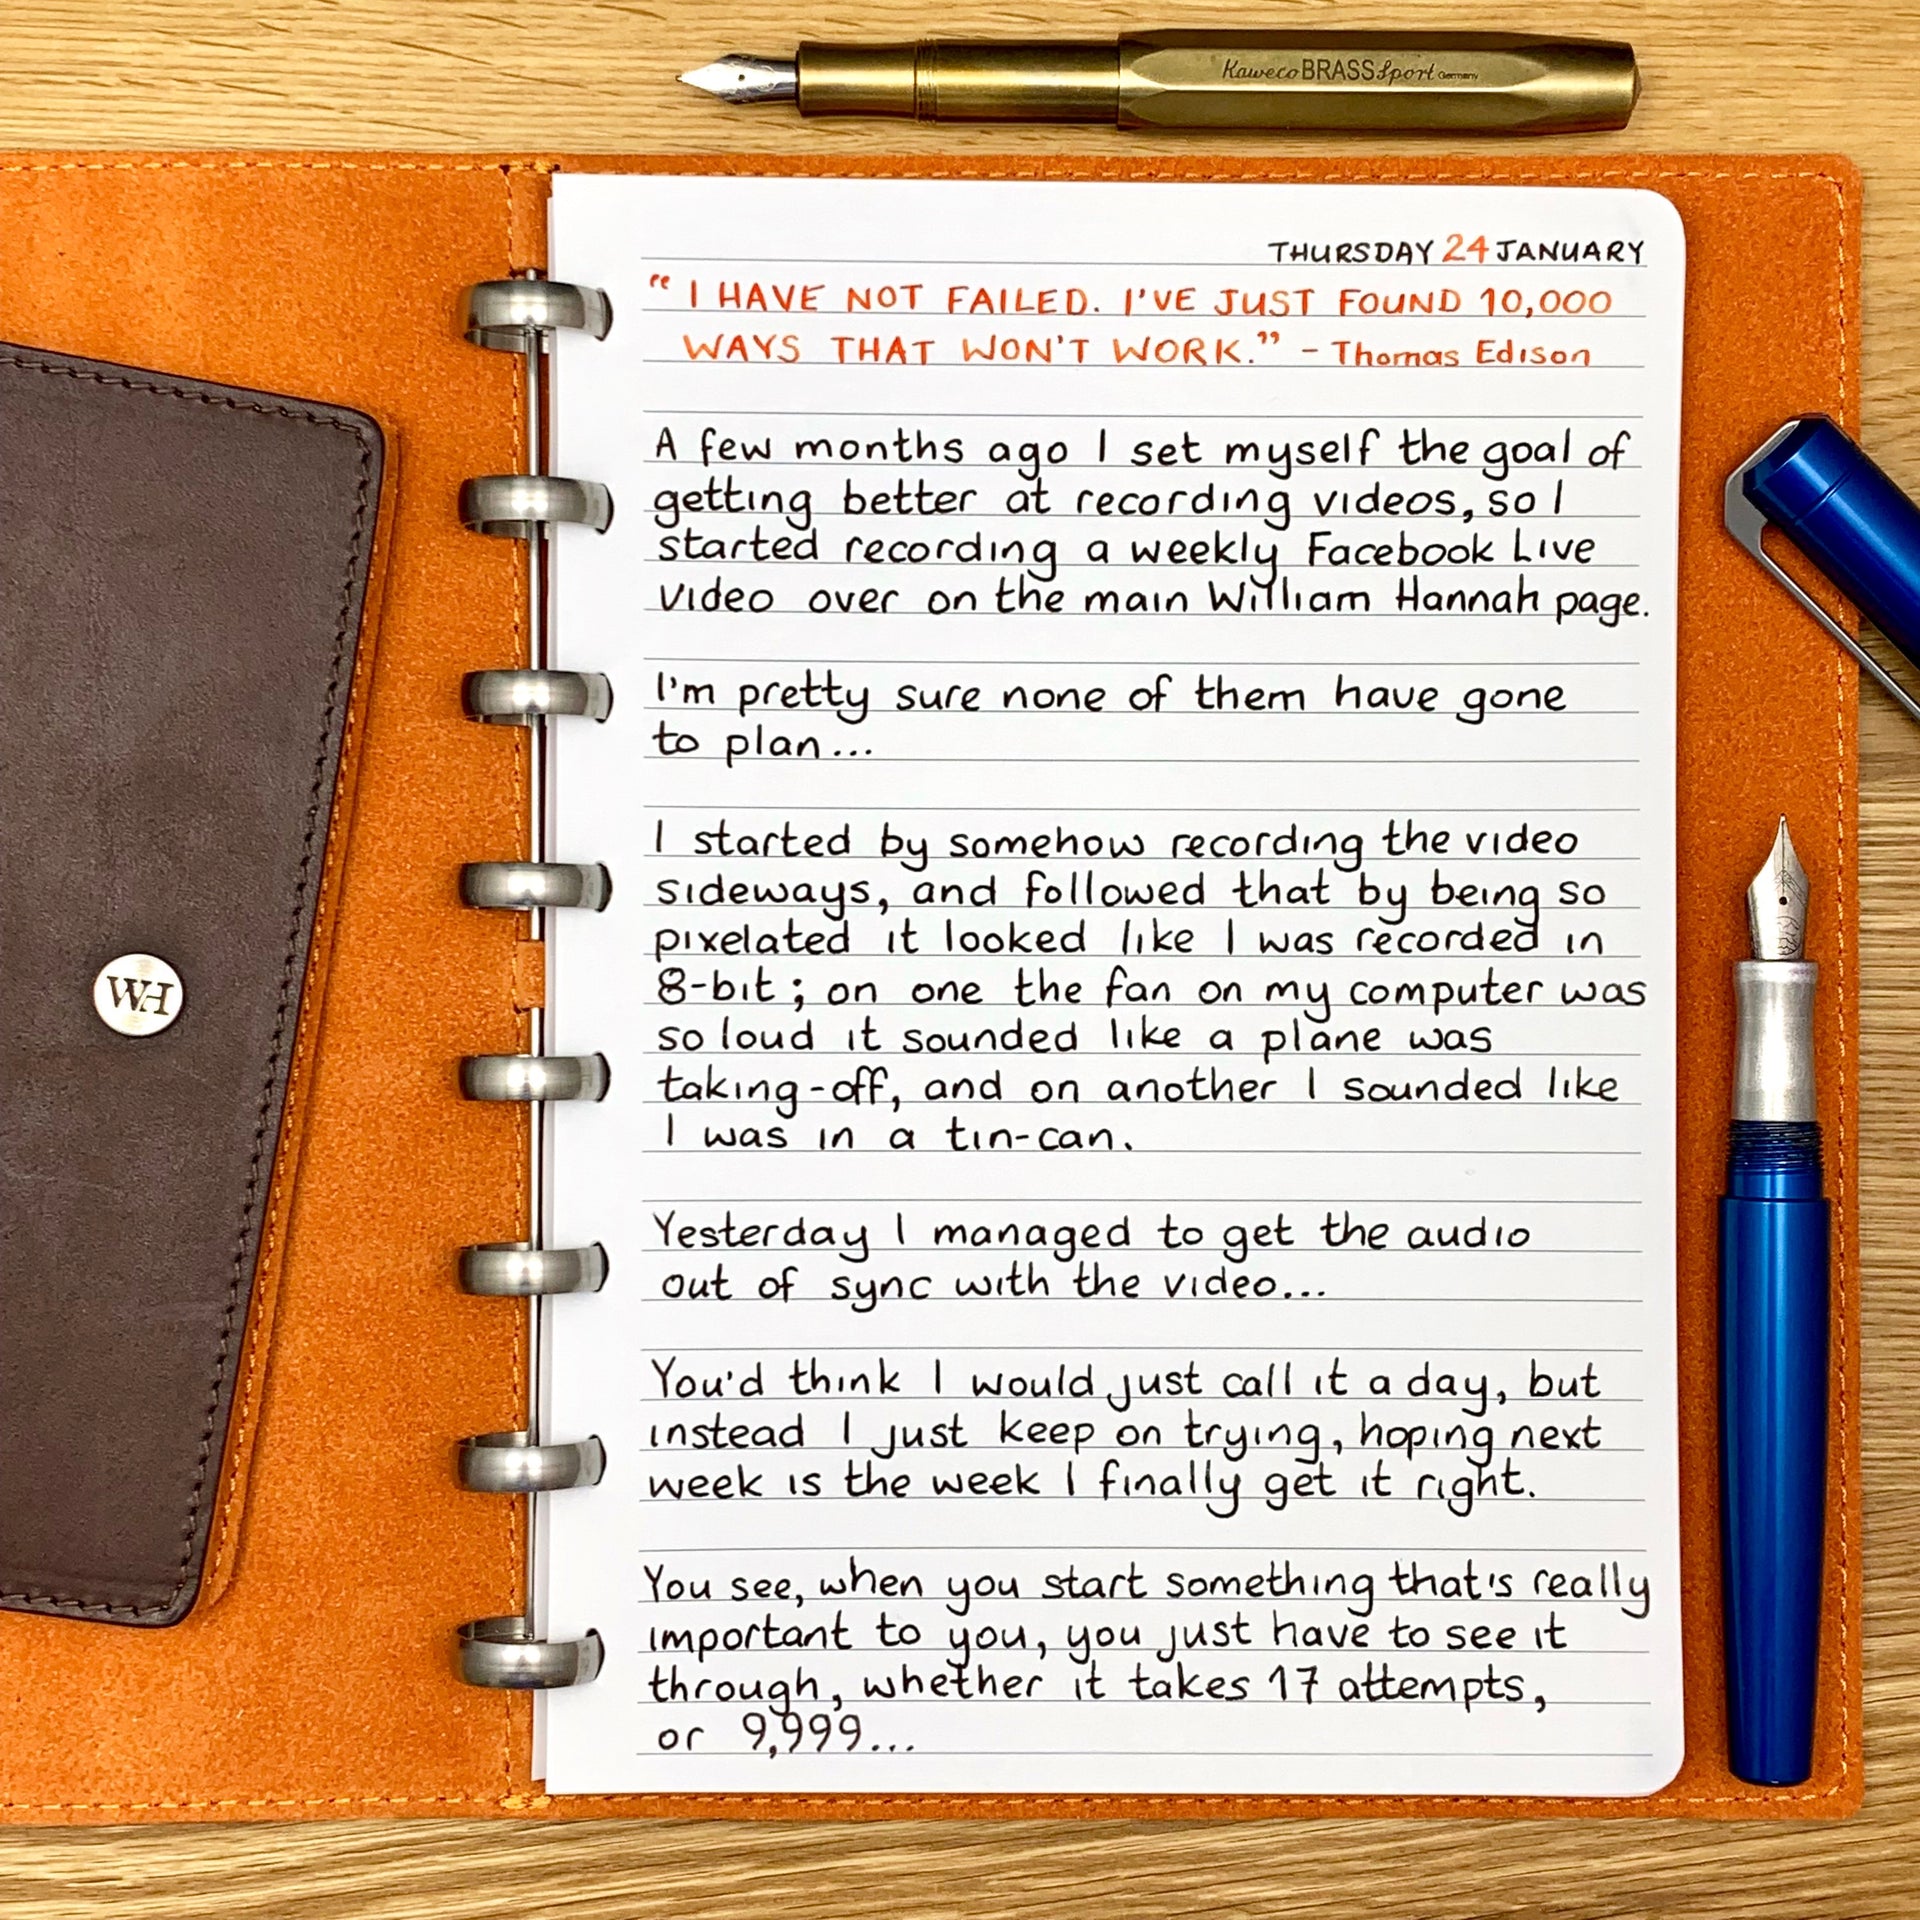 Kaweco BRASS Sport Germany
THURSDAY 24 JANUARY
“I HAVE NOT FAILED. I'VE JUST FOUND 10,000
WAYS THAT WON'T WORK.” - Thomas Edison
A few months ago I set myself the goal of
getting better at recording videos, so I
started recording a weekly Facebook Live
video over on the main William Hannah page.
I'm pretty sure none of them have gone
to plan...
I started by somehow recording the video
sideways, and followed that by being so
pixelated it looked like I was recorded in
8-bit; on one the fan on my computer was
so loud it sounded like a plane was
taking-off, and on another I sounded like
I was in a tin-can.
Yesterday I managed to get the audio
out of sync with the video...
You'd think I would just call it a day, but
instead I just keep on trying, hoping next
week is the week I finally get it right.
You see, when you start something that's really
important to you, you just have to see it
through, whether it takes 17 attempts,
or 9,999...
WH